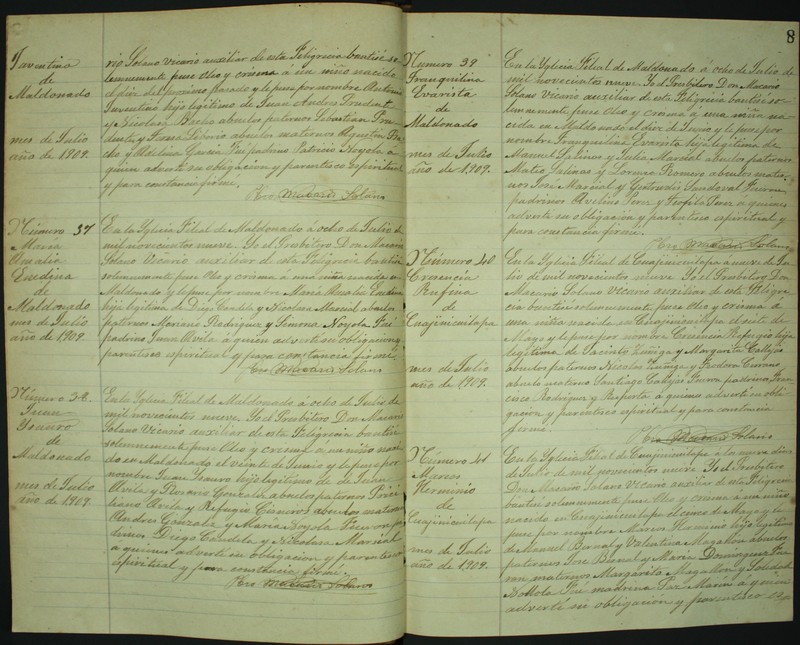 Juventina
de
Maldonado
mes de Julio
año de 1909.
rio Solano Vicario auxiliar de esta Feligrecia bautisé so-
lemnemente puse Oleo y crisma á un niño nacido
el diez del proximo pasado y le puse por nombre
Juventino hijo legitimo de Juan Andres
y Nicolasa abuelos paternos Sebastian
abuelos maternos Agustin
y Garcia Fue padrino Patricio Noyola a
quien adverti su obligacion y parentesco espiritual
y para constancia firmé.
Pbro Macario Solano
Número 37
Maria
Amalia
Eudina
de
Maldonado
mes de Julio
año de 1909
En la Yglecia Filial de Maldonado á ocho de Julio de
mil novecientos nueve Yo el Presbitero Don Macario
Solano Vicario auxiliar de esta Feligrecia bautisé
solemnemente puse Oleo y crisma á una niña nacida en
Maldonado y le puse por nombre Maria Amalia
hija legitima de Diego Candela y Nicolasa Marcial abuelos
paternos Mariano Rodriguez y Simona Noyola Fue
padrino Juan Avila á quien adverti su obligacion y
parentesco espiritual y para constancia firmé.
Pbro Macario Solano
Número 38.
Juan
Ysauro
de
Maldonado
mes de Julio
año de 1909.
En la Yglecia Filial de Maldonado á ocho de Julio de
mil novecientos nueve Yo el Presbitero Don Macario
Solano Vicario auxiliar de esta Feligrecia bautisé
solemnemente puse Oleo y crisma á un niño naci-
do en Maldonado el veinte de Junio y le puse por
nombre Juan Ysauro hijo legitimo de de Juan
Avila y Rosario Gonzalez abuelos paternos
Avila y Refugia Cisneros abuelos maternos
Andres Gonzalez y Maria Noyola Fueron pa-
drinos Diego Candela y Nicolasa Marcial
a quienes adverti su obligacion y parentesco
espiritual y para constancia firmé.
Pbro Macario Solano
8
Número 39
Tranquilina
Evarista
de
Maldonado
mes de Julio
año de 1909.
En la Yglecia Filial de Maldonado á ocho de Julio de
mil novecientos nueve. Yo el Presbitero Don Macario
Solano Vicario auxiliar de esta Feligrecia bautisé so-
lemnemente puse Oleo y crisma a una niña na-
cida en Maldonado el diez de Junio y le puse por
nombre Tranquilina Evarista hija legitima de
Manuel Salinas y Julia Marcial abuelos paternos
Matio Salinas y Lorenza Romero abuelos mater-
nos Jose Marcial y Gertrudis Sandoval Fueron
padrinos Avelino Perez y Teofila Perez a quienes
adverti su obligacion y parentesco espiritual y
para constancia firmé.
Pbro Macario Solano
Número 40
Crecencia
Rufina
de
Cuajinicuilapa
mes de Julio
año de 1909.
En la Yglecia Filial de Cuajinicuilapa á nueve de Ju-
lio de mil novecientos nueve Yo el Presbitero Don
Macario Solano Vicario auxiliar de esta Feligre-
cia bautisé solemnemente puse Oleo y crisma á
una niña nacida en Cuajinicuilapa el siete de
Mayo y le puse por nombre Crecencia Refugio hija
legitima de Jacinto Zuñiga y Margarita Callejas
abuelos paternos Nicolas Zuñiga y Teodora
abuelo materno Santiago Callejas Fueron padrinos Fran-
cisco Rodriguez y á quienes adverti su obli-
gacion y parentesco espiritual y para constancia
firmé.
Pbro Macario Solano
Número 41
Marcos
Herminio
de
Cuajinicuilapa
mes de Julio
año de 1909.
En la Yglecia Filial de Cuajinicuilapa a los nueve dias
de Julio de mil novecientos nueve Yo el Presbitero
Don Macario Solano Vicario auxiliar de esta Feligrecia
bautisé solemnemente puse Oleo y crisma á un niño
nacido en Cuajinicuilapa el once de Mayo y le
puse por nombre Marcos Herminio hijo legitimo
de Manuel Bernal y Valentina Magallon abuelos
paternos Jose Bernal y Maria Dominguez Fue
ron maternos Margarito Magallon y Soledad
Fue madrina Paz Marin á quien
adverti su obligación y parentesco es-